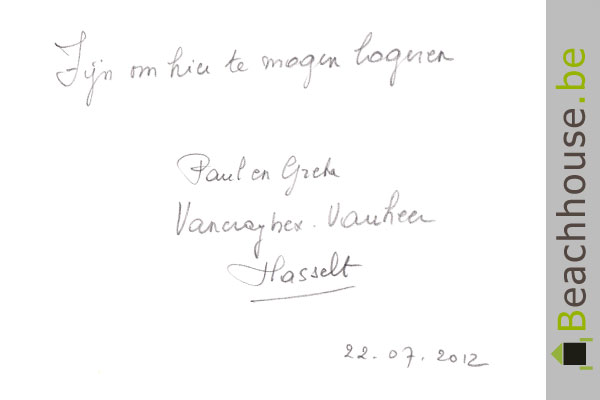 Fijn om hier te mogen logeren
Paul en Greta
Vancraybex. Vanheer
Hasselt
22.07.2012
Beachhouse.be